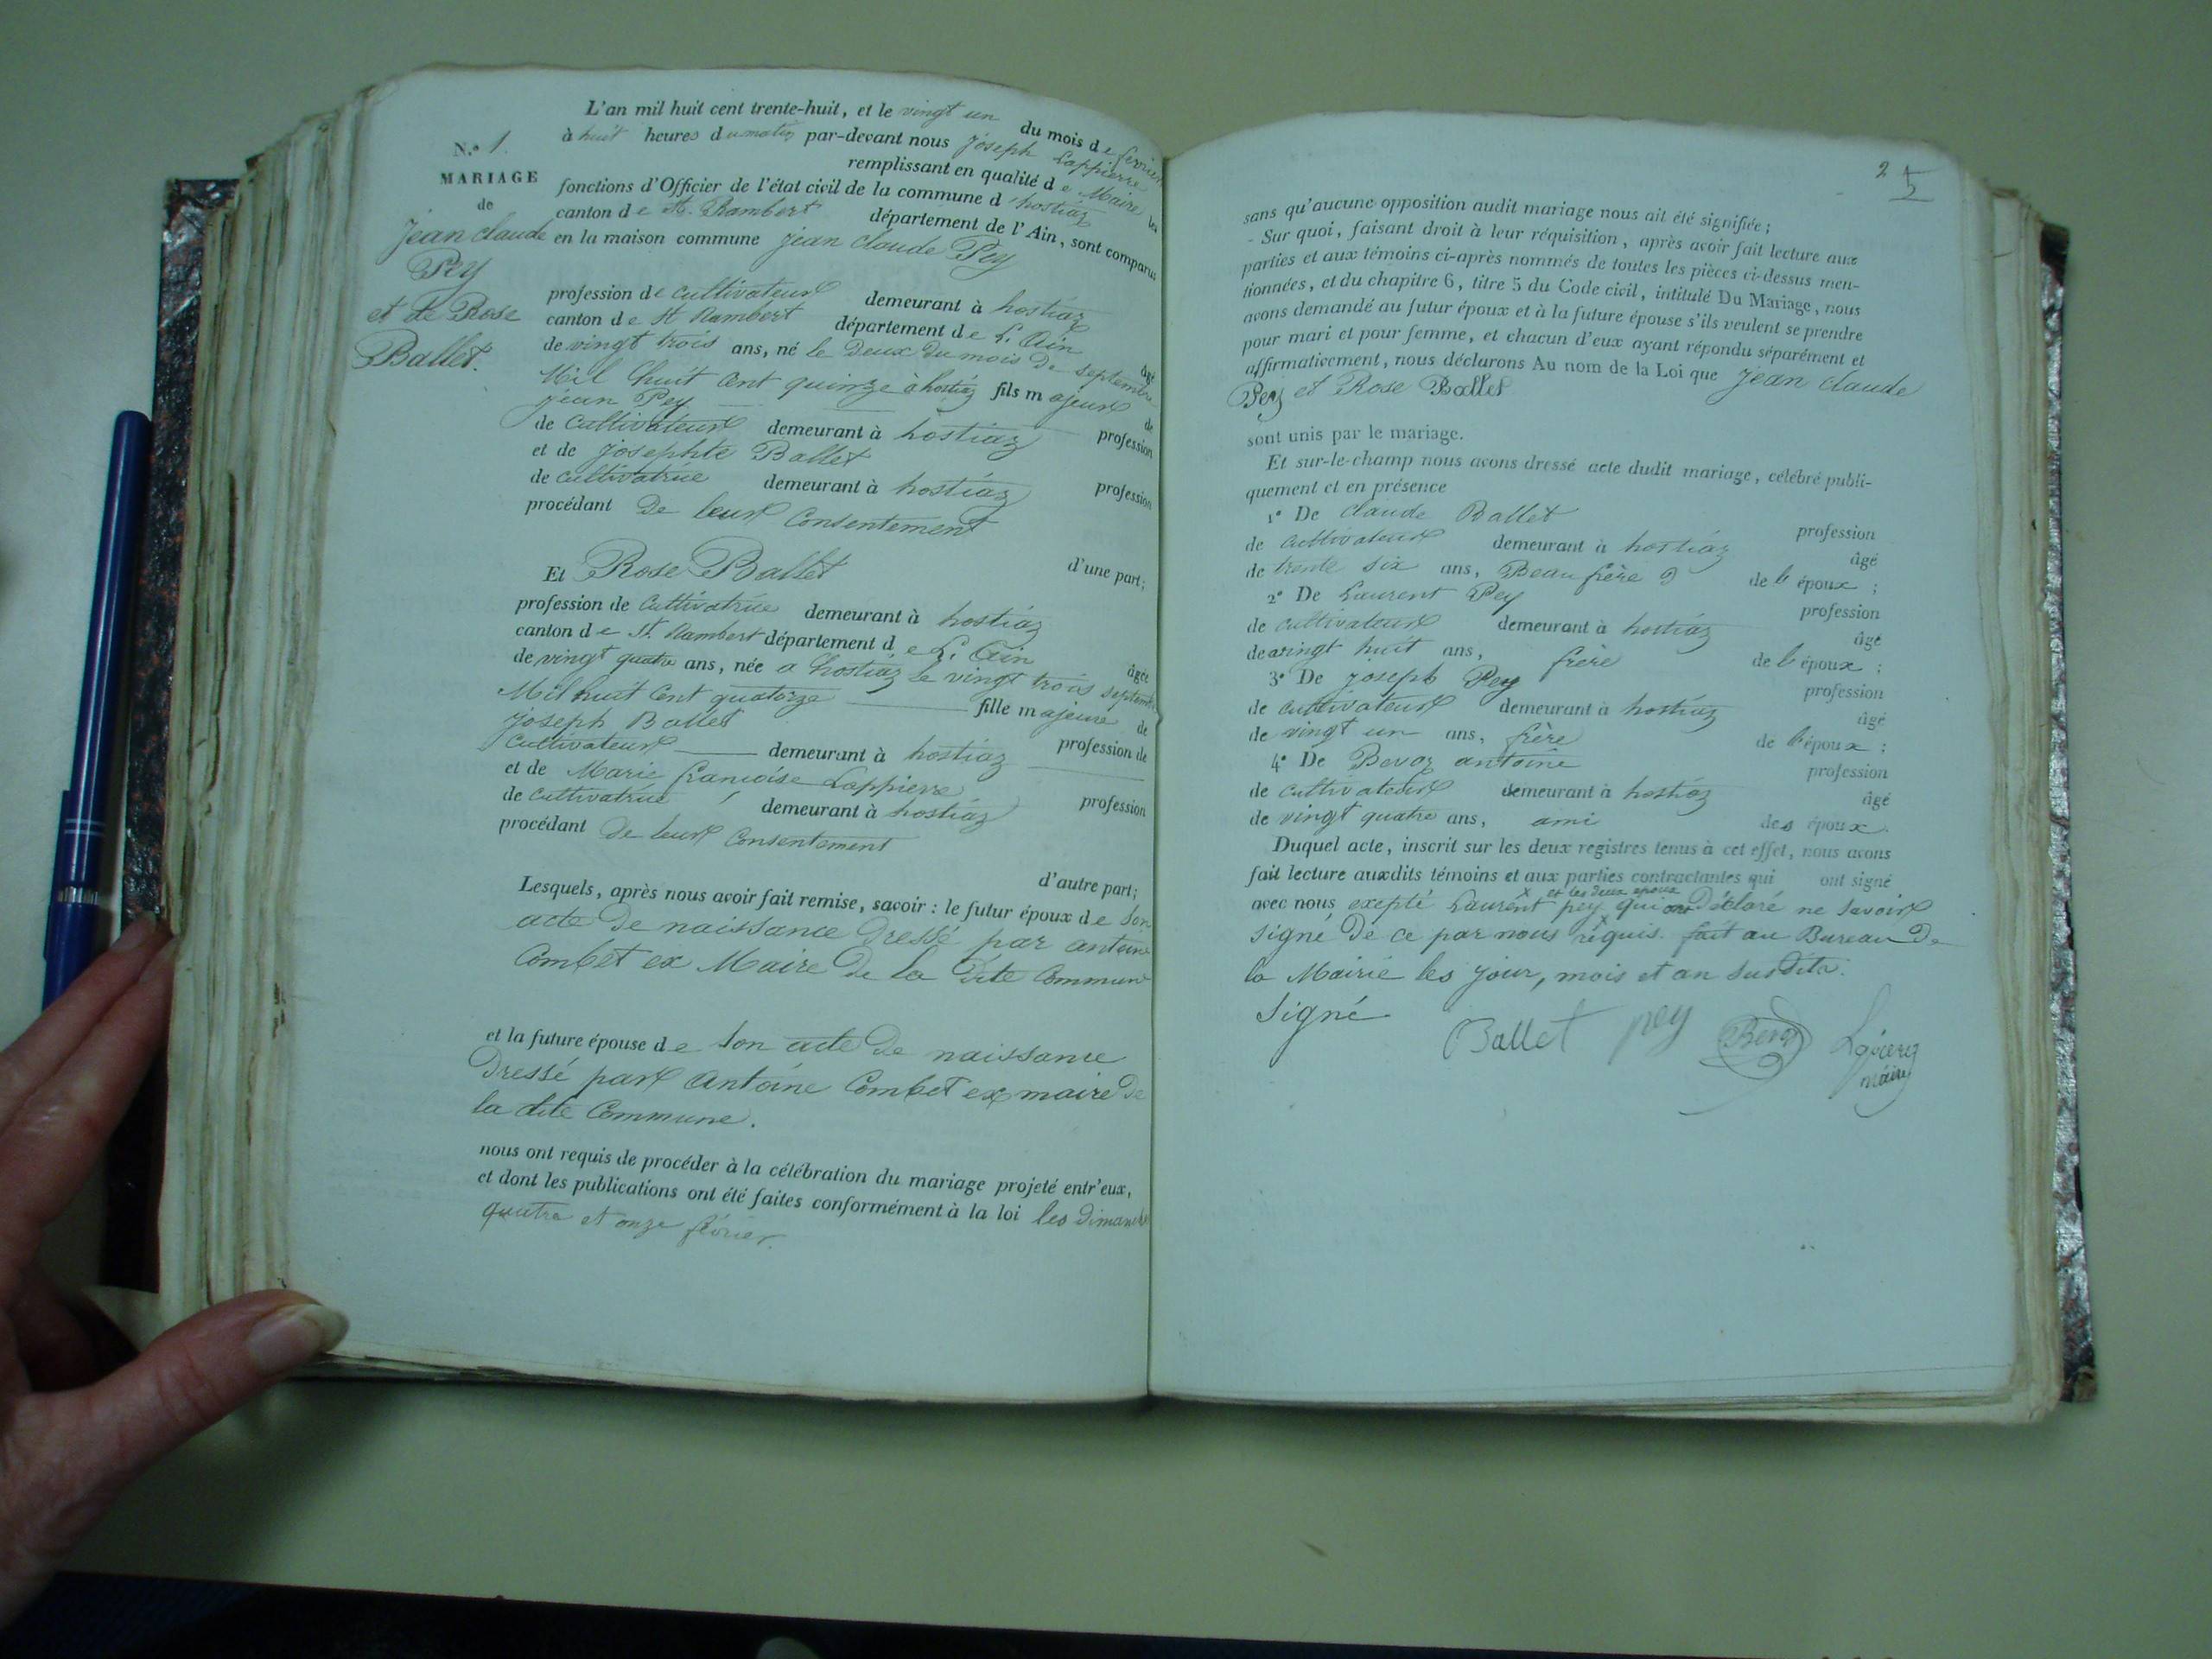 L'an mil huit cent trente-huit, et le vingt un du mois de fevrier
à huit heures du matin par-devant nous joseph Lappierre
remplissant en qualité de Maire les
fonctions d'Officier de l'état civil de la commune d'hostiaz
canton de St. Rambert département de l'Ain, sont comparus
en la maison commune jean claude Pey
N.o 1.
MARIAGE
de
jean claude
Pey
et de Rose
Ballet.
profession de cultivateur demeurant à hostiaz
canton de St Rambert département de L'Ain âgé
de vingt trois ans, né le deux du mois de septembre
Mil huit cent quinze à hostiaz fils majeur de
jean Pey profession
de cultivateur demeurant à hostiaz
et de josephte Ballet profession
de cultivatrice demeurant à hostiaz
procédant de leur Consentement
d'une part;
Et Rose Ballet
profession de cultivatrice demeurant à hostiaz
canton de St. Rambert département de L'Ain âgée
de vingt quatre ans, née a hostiaz le vingt trois septembre
Mil huit cent quatorze fille majeure de
joseph Ballet profession de
cultivateur demeurant à hostiaz
et de Marie françoise Lappierre profession
de cultivatrice demeurant à hostiaz
procédant de leur Consentement
d'autre part;
Lesquels, après nous avoir fait remise, savoir : le futur époux de son
acte de naissance dressé par antoine
Combet ex Maire de la dite Commune
et la future épouse de son acte de naissance
dressé par Antoine Combet ex maire de
la dite Commune.
nous ont requis de procéder à la célébration du mariage projeté entr'eux,
et dont les publications ont été faites conformément à la loi les dimanche
quatre et onze février.
2
2
sans qu'aucune opposition audit mariage nous ait été signifiée ;
- Sur quoi, faisant droit à leur réquisition, après avoir fait lecture aux
parties et aux témoins ci-après nommés de toutes les pièces ci-dessus men-
tionnées, et du chapitre 6, titre 5 du Code civil, intitulé Du Mariage, nous
avons demandé au futur époux et à la future épouse s'ils veulent se prendre
pour mari et pour femme, et chacun d'eux ayant répondu séparément et
affirmativement, nous déclarons Au nom de la Loi que jean claude
Pey et Rose Ballet
sont unis par le mariage.
Et sur-le-champ nous avons dressé acte dudit mariage, célébré publi-
quement et en présence
1° De claude Ballet profession
de cultivateur demeurant à hostiaz âgé
de trente six ans, Beau frère de l'époux ;
2° De Laurent Pey profession
de cultivateur demeurant à hostiaz âgé
de vingt huit ans, frère de l'époux ;
3° De joseph Pey profession
de cultivateur demeurant à hostiaz âgé
de vingt un ans, frère de l'époux ;
4° De Bevoz antoine profession
de cultivateur demeurant à hostiaz âgé
de vingt quatre ans, ami des époux.
Duquel acte, inscrit sur les deux registres tenus à cet effet, nous avons
fait lecture auxdits témoins et aux parties contractantes qui ont signé
x et les deux epoux
avec nous exepté Laurent pey qui ont déclaré ne savoir
signé de ce par nous réquis. fait au Bureau de
la Mairie les jour, mois et an susdits.
Signé
Ballet pey Bevoz
maire